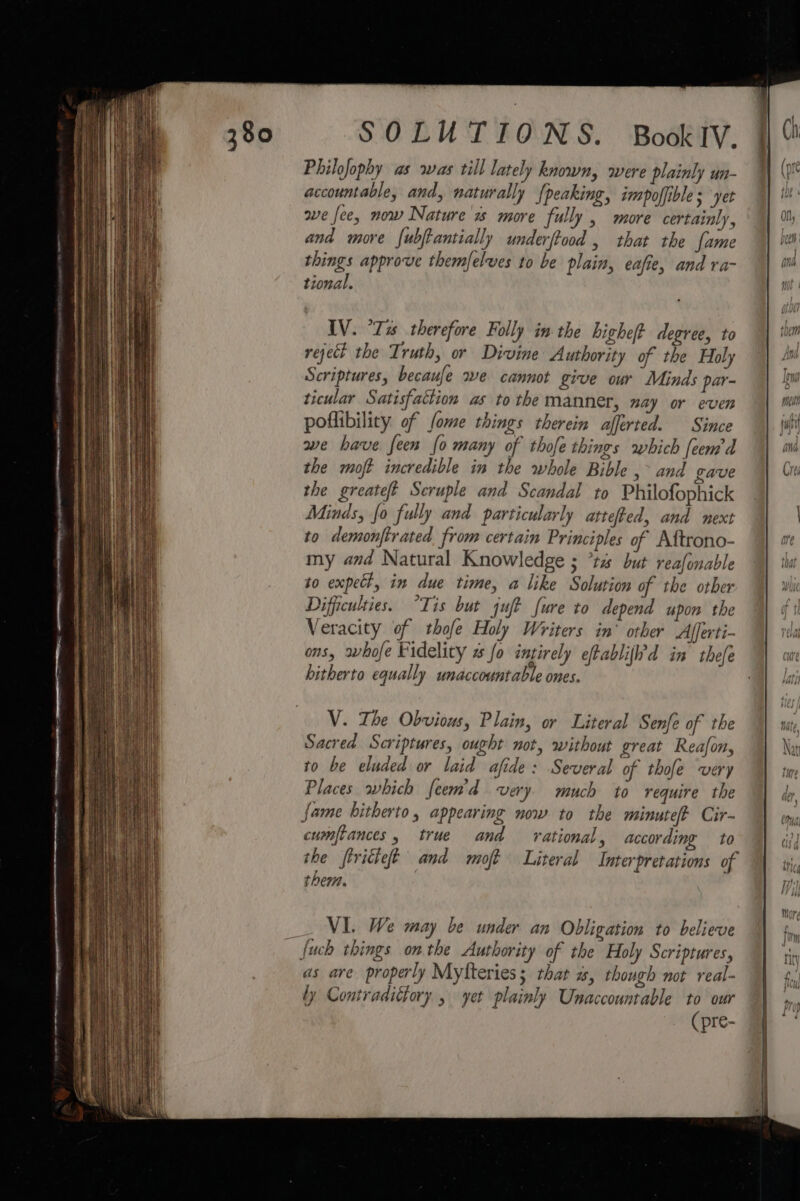 380 SOLUTIONS. Book IV.
Philoſophy as was till lately known, were plainly un-
accountable, and, naturally ſpeaking, impoſſible; yet
we ſee, now Nature is more fully, more certainly,
and more ſubſtantially underſtood, that the ſame
things approve themſelves to be plain, eaſie, and ra-
tional.
IV. 'Tis therefore Folly in the higheſt degree, to
reject the Truth, or Divine Authority of the Holy
Scriptures, becauſe we cannot give our Minds par-
ticular Satisfaction as to the manner, nay or even
poſſibility of ſome things therein aſſerted. Since
we have ſeen ſo many of thoſe things which ſeem'd
the moſt incredible in the whole Bible, and gave
the greateſt Scruple and Scandal to Philoſophick
Minds, ſo fully and particularly atteſted, and next
to demonſtrated from certain Principles of Aſtrono-
my and Natural Knowledge; 'tis but reaſonable
to expect, in due time, a like Solution of the other
Difficulties. 'Tis but juſt ſure to depend upon the
Veracity of thoſe Holy Writers in other Aſſerti-
ons, whoſe Fidelity is ſo intirely eſtabliſh'd in theſe
hitherto equally unaccountable ones.
V. The Obvious, Plain, or Literal Senſe of the
Sacred Scriptures, ought not, without great Reaſon,
to be eluded or laid aſide: Several of thoſe very
Places which ſeem'd very much to require the
ſame hitherto, appearing now to the minuteſt Cir-
cumſtances, true and rational, according to
the ſtricteſt and moſt Literal Interpretations of
them.
VI. We may be under an Obligation to believe
ſuch things on the Authority of the Holy Scriptures,
as are properly Myſteries; that is, though not real-
ly Contradictory, yet plainly Unaccountable to our
(pre-